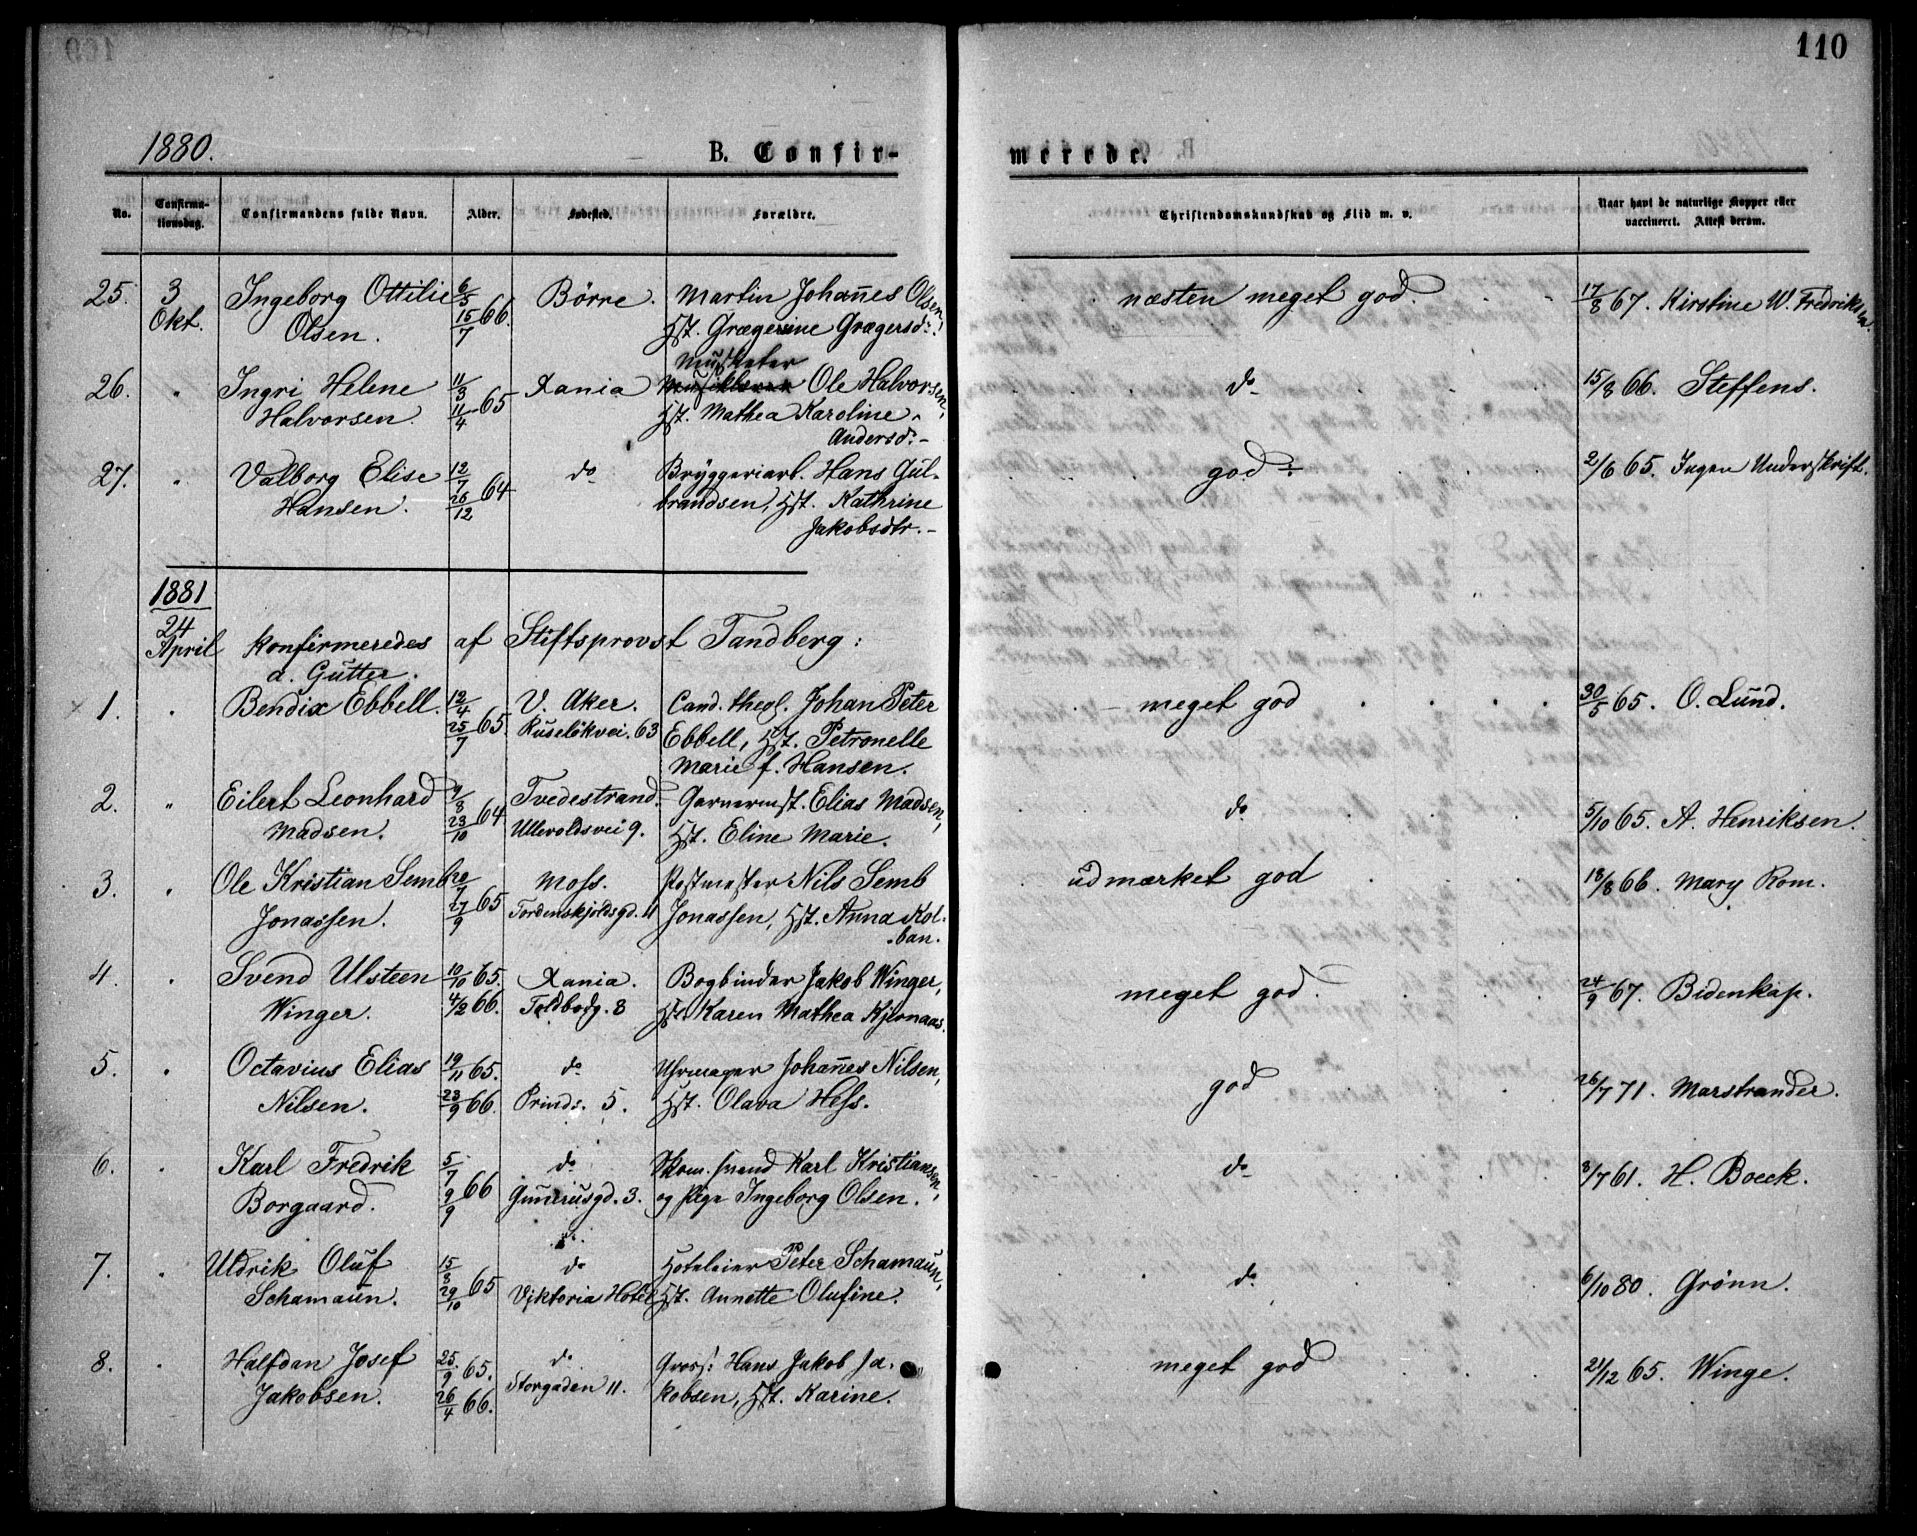 110
1880.
B. Confir-
merede.
No.
Confirma-
tionsdag.
Confirmandens fulde Navn.
Alder.
Fødested.
Forældre.
Christendomskundskab og Flid m. v.
Naar havt de naturlige Kopper eller
vaccineret. Attest derom.
25. 3 Ingeborg Ottilie 6/5 Börre. Martin Johannes Olsen, næsten meget god. 17/8 67. Kirstine W. Fredriksen.
Okt. Olsen. 15/7 66. Hst. Grægerine Grægersd.
Musketer
26. " Ingri Helene 11/3 Xania Ole Halvorsen, do 15/8 66. Steffens.
Halvorsen. 11/4 65 Hst. Mathea Karoline
Andersd. -
27. " Valborg Elise 12/7 do Bryggeriarb. Hans Gul- god ÷ 2/6 65. Ingen Underskrift.
Hansen. 26/12 64 brandsen, Hst. Kathrine
Jakobsdtr. -
1881
24
April konfirmeredes af Stiftsprovst Tandberg:
a. Gutter.
× 1. " Bendix Ebbell. 12/4 V. Aker. Cand. theol. Johan Peter meget god 30/5 65. O. Lund.
25/7 65. Ruselökvei. 63 Ebbell, Hst. Petronelle
Marie f. Hansen.
2. " Eilert Leonhard 7/8 Tvedestrand. Garverm st. Elias Madsen, do 5/10 65. A. Henriksen.
Madsen. 23/10 64 Ullevoldsvei 9. Hst. Eline Marie.
3. " Ole Kristian Semb 20/7 Moss. Postmester Nils Semb udmærket god 18/8 66. Mary Rom.
Jonassen. 27/9 65 Tordenskjoldsgd. 11 Jonassen, Hst. Anna Kol-
ban.
4. " Svend Ulsteen 10/10 65. Xania. Bogbinder Jakob Winger, meget god. 24/9 67. Bidenkap.
Winger. 4/2 66. Toldbodg. 8 Hst. Karen Mathea Kjernaas.
5. " Octavius Elias 19/11 65. do Uhrmager Johannes Nilsen, god 26/7 71. Marstrander.
Nilsen. 23/9 66. Prinds. 5. Hst. Olava Hess.
6. " Karl Fredrik 5/7 do Skom. svend Karl Kristiansen, do 8/7 61. H. Boeck.
Borgaard. 9/9 66 Gunerusgd. 3. og Pige Ingeborg Olsen.
7. " Uldrik Oluf 15/8 do Hoteleier Peter Schamaun, do 6/10 80. Grönn.
Schamaun. 29/10 65 Viktoria Hotel Hst. Annette Olufine.
8. " Halfdan Josef 25/9 65. do Gross: Hans Jakob Ja- meget god 21/12 65. Winge.
Jakobsen. 26/4 66. Storgaden 11. kobsen, Hst. Karine.